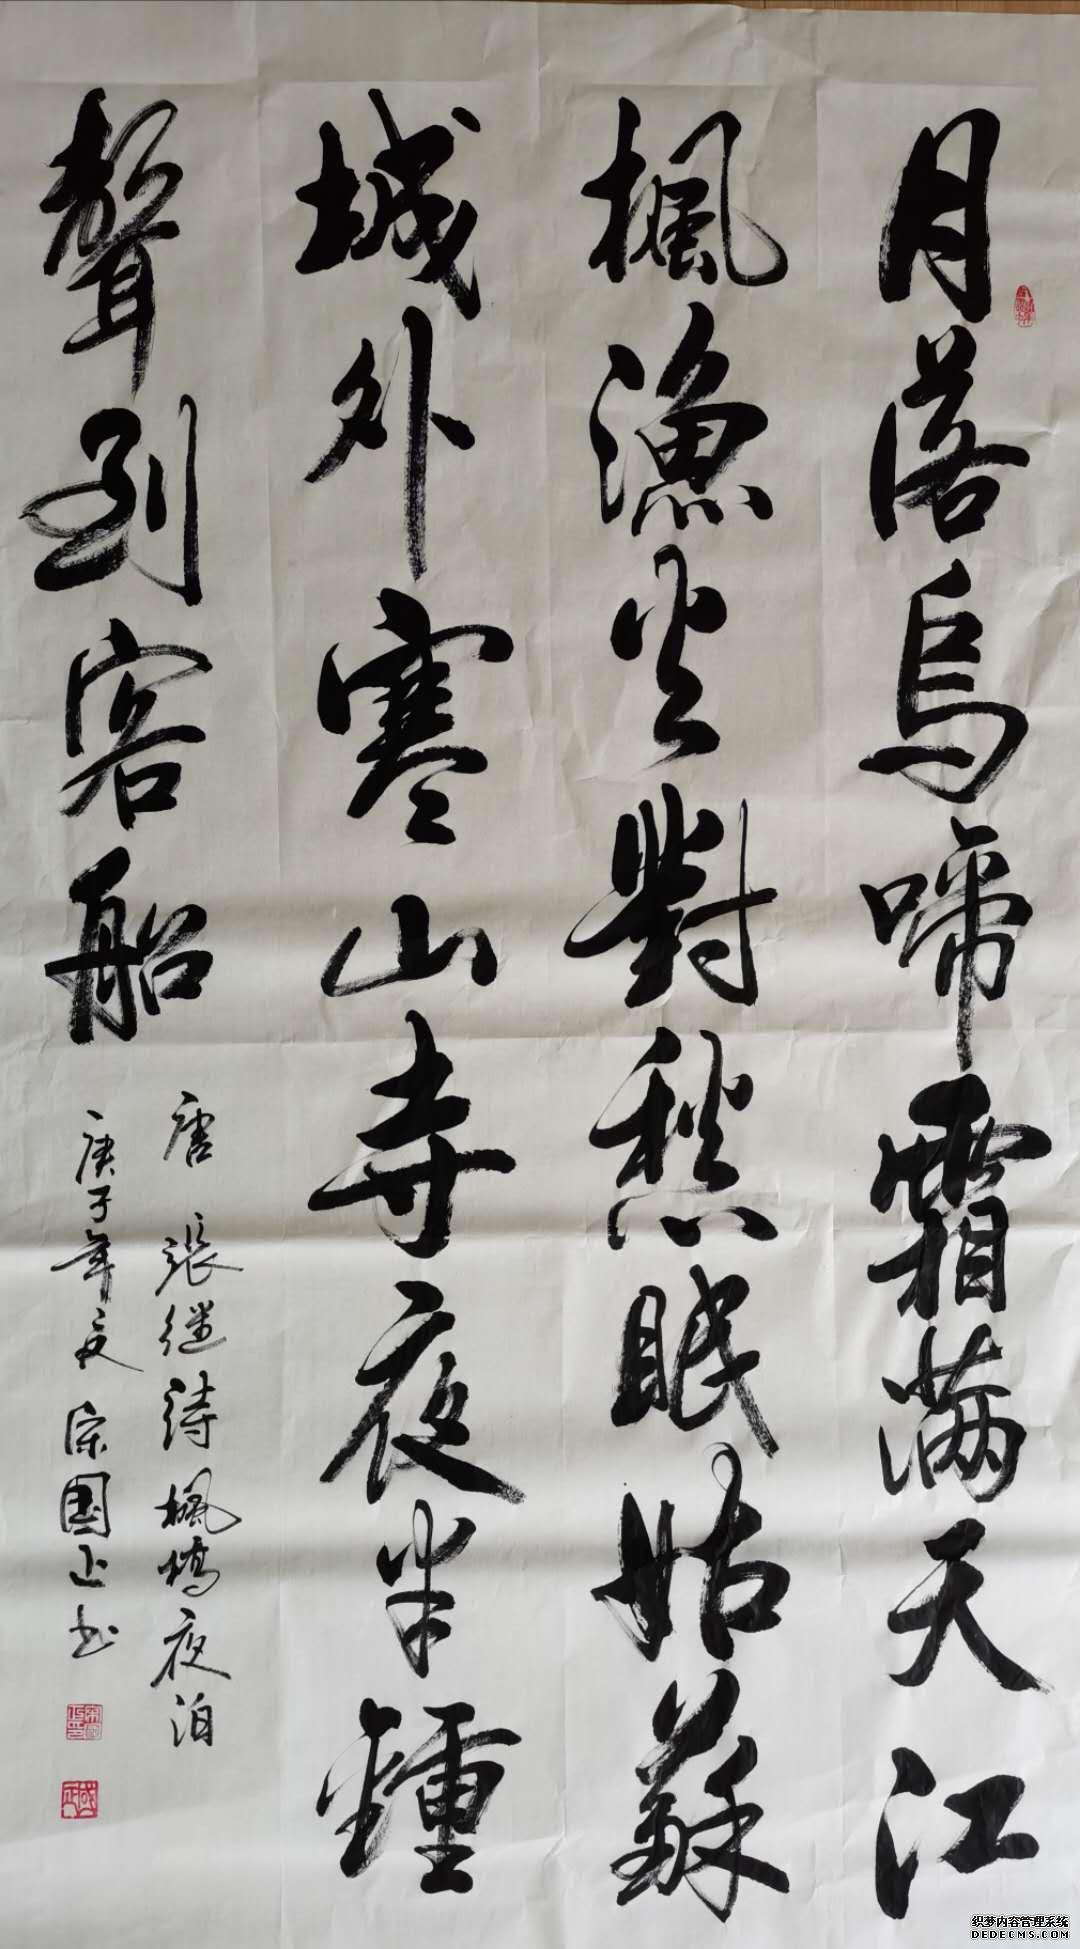 月落烏啼霜满天江
楓漁火對愁眠姑蘇
城外寒山寺夜半鍾
聲到客船
唐張继詩楓橋夜泊
庚子年夏宗國正书
织梦内容管理系统
DEDECMS.COM